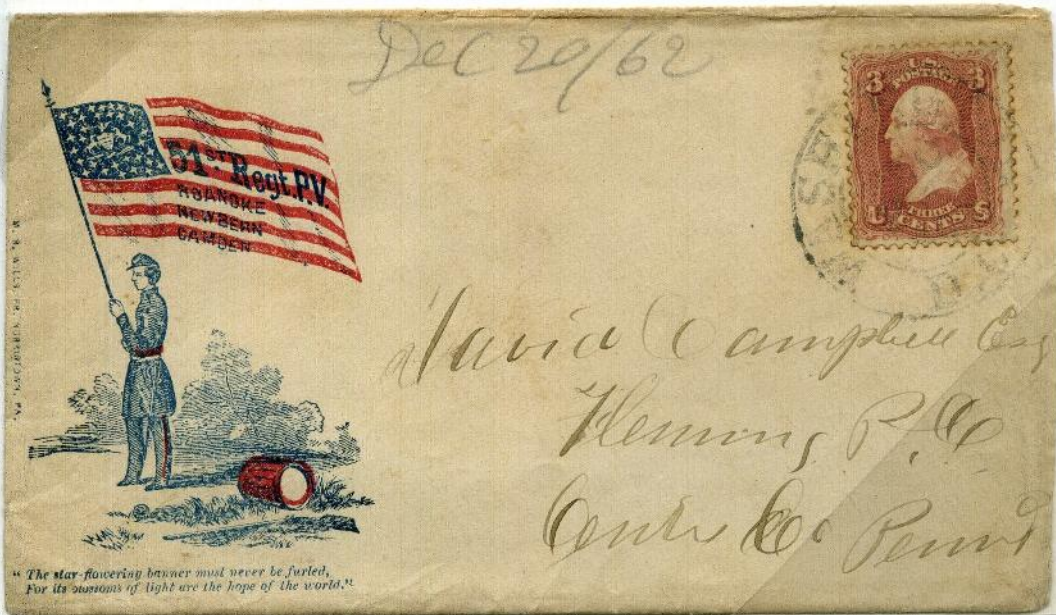 Dec 20/62
U.S.
POSTAGE
3 3
THREE
U CENTS S
WASH D.C.
51ST Regt. P.V.
ROANOKE
NEWBERN
CAMDEN
David Campbell Esq
Fleming P.O
Centre Co Penna
"The star-flowering banner must never be furled,
For its blossoms of light are the hope of the world."